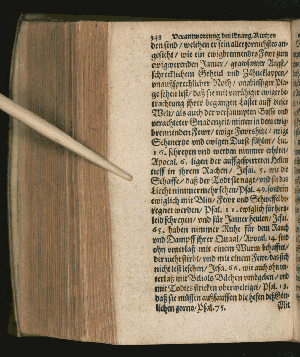 348 Verantwortung der Evang. Kirchen
den sind / welchen er sein allergnedigstes an-
gesicht / wie ein ewigbrennendes Fewr zum
ewigwerenden Jamer / grausamer Angst /
schrecklichem Geheul und Zähneklappen /
unaußsprechlicher Noth / unablässiger Pla-
ge sehen lest / daß sie mit ewiger be-
trachtung ihrer begangnen Laster auff dieser
Welt / als auch der versaumpten Busse und
verachteter Gnadenzeit mitten in dem ewig
brennenden Fewr / ewige Fewrshitz / ewige
Schmertze und ewigen Durst fühlen / Luc.
16. schreyen und werden nimmer erhöret /
Apocal. 6. ligen der auffgesperrten Hellen
tieff in ihrem Rachen / Jesai. 5. wie die
Schaffe / daß der Todt sie nagt / und sie das
Liecht nimmermehr sehen / Psal. 49. sondern
ewiglich mit Blitz / Fewr und Schweffel be-
regnet werden / Psal. 11. ewiglich für hertz-
leid schreyen / und für Jamer heulen / Jesai.
65. haben nimmer Ruhe für dem Rauch
und Dampff ihrer Quaal / Apocal. 14. sind
ohn unterlaß mit einem Wurm
der nicht stirbt / und mit einem Fewr / das sich
nicht lest leschen / Jesa. 66. wie auch ohn un-
terlaß mit Belials Bächen umbgeben / und
mit Todtes stricken uberweltiget / Psal. 18.
daß sie müssen außsauffen die hefen deß Gött-
lichen zorns / Psal. 75.
Mit